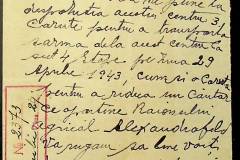 va me pune la
dispozitia acestui centru 3
Carute pentru a transporta
sarma dela acest centru la
4 Etape pe ziua 29
Aprilie 1943, cum si o Caruta
pentru a ridica un Cantar
ce apartine Raionului
agricol Alexandrafeld
Va rugam sa bine voiti
No 2073